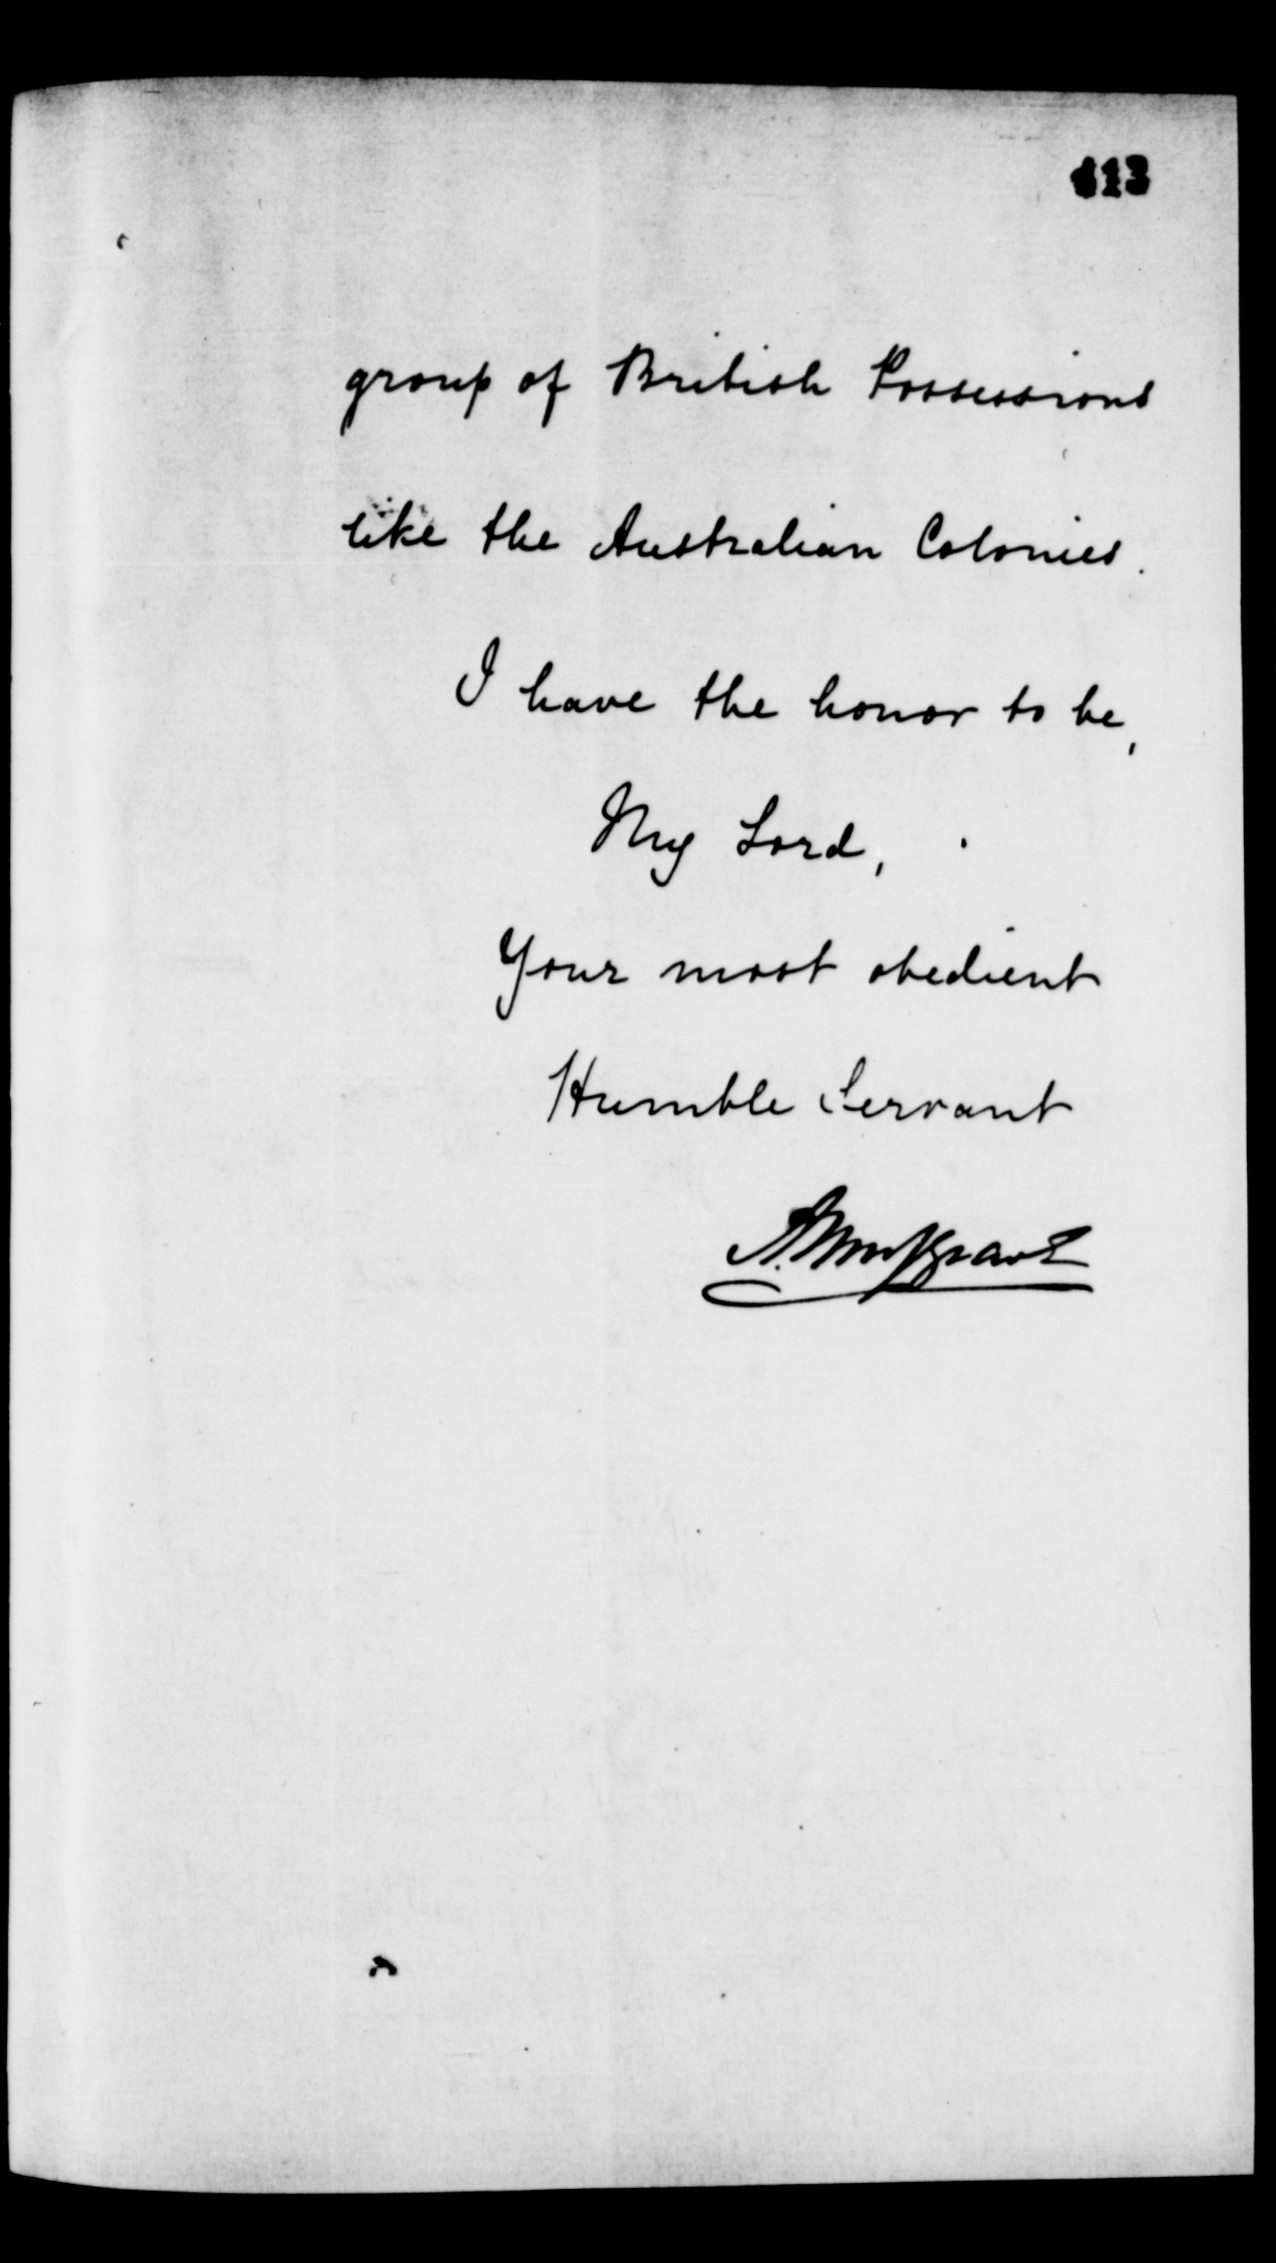 413
group of British Possessions
like the Australian Colonies.
I have the honor to be,
My Lord,
Your most obedient
Humble Servant
A. Musgrave